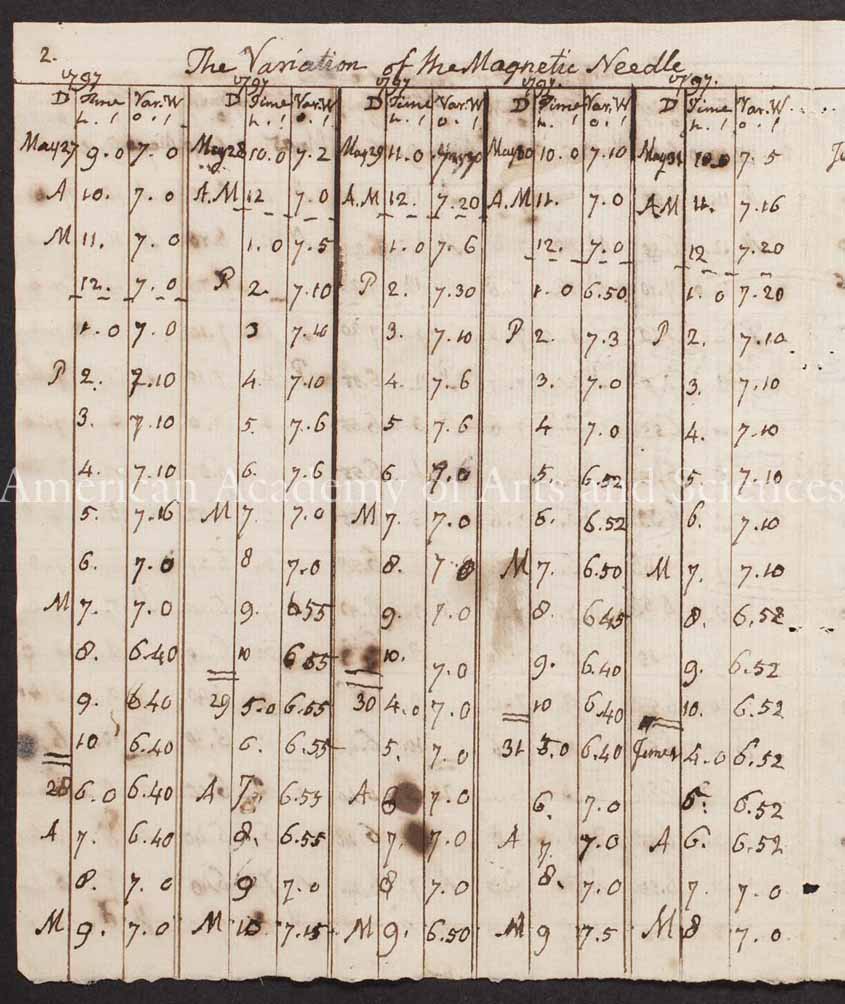 2. The Variation of the Magnetic Needle
1797 1797 1797 1797. 1797.
D Time Var.W D Time Var.W D Time Var.W D Time Var.W D Time Var.W
h. ' o. ' h. ' o. ' h. ' o. ' h. ' o. ' h. ' o. '
May 27 9.0 7.0 May 28 10.0 7.2 May 29 11.0 May 30 10.0 7.10 May 31 10.0 7.5
A 10. 7.0 A.M 12 7.0 A.M 12. 7.20 A.M 11. 7.0 AM 11. 7.16
M 11. 7.0 1.0 7.5 1.0 7.6 12. 7.0 12 7.20
12. 7.0 P 2. 7.10 P 2. 7.30 1.0 6.50 1.0 7.20
1.0 7.0 3 7.10 3. 7.10 P 2. 7.3 P 2. 7.10
P 2. 7.10 4. 7.10 4. 7.6 3. 7.0 3. 7.10
3. 7.10 5. 7.6 5 7.6 4 7.0 4. 7.10
4. 7.10 6. 7.6 6. 7.0 5. 6.52 5 7.10
American Academy of Arts and Sciences
5. 7.16 M 7. 7.0 M 7. 7.0 6. 6.52 6. 7.10
6. 7.0 8 7.0 8. 7.0 M 7. 6.50 M 7. 7.10
M 7. 7.0 9. 6.55 9. 7.0 8. 6.45 8. 6.52
8. 6.40 10 6.55 10. 7.0 9. 6.40 9. 6.52
9. 6.40 29 5.0 6.55 30 4.0 7.0 10 6.40 10. 6.52
10 6.40 6. 6.55 5. 7.0 31 5.0 6.40 June 1 4.0 6.52
28 6.0 6.40 A 7. 6.55 A 6 7.0 6. 7.0 5. 6.52
A 7. 6.40 8. 6.55 7. 7.0 A 7. 7.0 A 6. 6.52
8. 7.0 9 7.0 8 7.0 8. 7.0 7. 7.0
M 9. 7.0 M 10. 7.15 M 9. 6.50 M 9 7.5 M 8 7.0